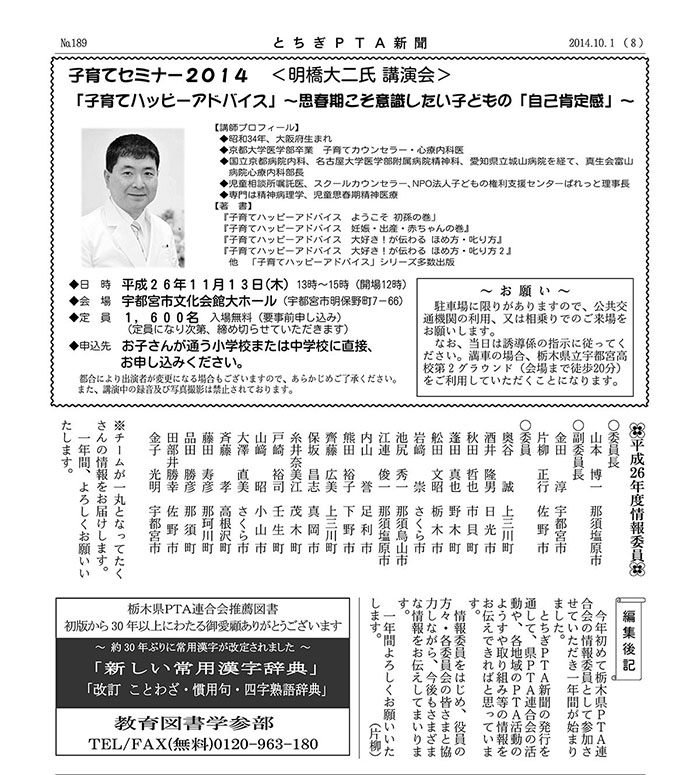 №189
とちぎPTA新聞
2014.10.1（8）
子育てセミナー2014　＜明橋大二氏 講演会＞
「子育てハッピーアドバイス」～思春期こそ意識したい子どもの「自己肯定感」～
【講師プロフィール】
◆昭和34年、大阪府生まれ
◆京都大学医学部卒業　子育てカウンセラー・心療内科医
◆国立京都病院内科、名古屋大学医学部附属病院精神科、愛知県立城山病院を経て、真生会富山
病院心療内科部長
◆児童相談所嘱託医、スクールカウンセラー、NPO法人子どもの権利支援センターぱれっと理事長
◆専門は精神病理学、児童思春期精神医療
【著　書】
『子育てハッピーアドバイス　ようこそ 初孫の巻』
『子育てハッピーアドバイス　妊娠・出産・赤ちゃんの巻』
『子育てハッピーアドバイス　大好き！が伝わる ほめ方・叱り方』
『子育てハッピーアドバイス　大好き！が伝わる ほめ方・叱り方2』
他　「子育てハッピーアドバイス」シリーズ多数出版
◆日　時　平成26年11月13日(木) 13時～15時（開場12時）
◆会　場　宇都宮市文化会館大ホール（宇都宮市明保野町7－66）
◆定　員　1，600名　入場無料（要事前申し込み）
（定員になり次第、締め切らせていただきます）
◆申込先　お子さんが通う小学校または中学校に直接、
お申し込みください。
都合により出演者が変更になる場合もございますので、あらかじめご了承ください。
また、講演中の録音及び写真撮影は禁止されております。
～ お 願 い ～
駐車場に限りがありますので、公共交
通機関の利用、又は相乗りでのご来場を
お願いします。
なお、当日は誘導係の指示に従ってく
ださい。満車の場合、栃木県立宇都宮高
校第２グラウンド（会場まで徒歩20分）
をご利用していただくことになります。
平成26年度情報委員
○委員長
山本　博一　那須塩原市
○副委員長
金田　淳　宇都宮市
片柳　正行　佐野市
○委員
奥谷　誠　上三川町
酒井　隆男　日光市
秋田　哲也　市貝町
蓬田　真也　野木町
舩田　文昭　栃木市
岩﨑　崇　さくら市
池尻　秀一　那須烏山市
江連　俊一　那須塩原市
内山　誉　足利市
熊田　裕子　下野市
齊藤　広美　上三川町
保坂　昌志　真岡市
糸井奈美江　茂木町
戸崎　裕司　壬生町
山﨑　昭　小山市
大澤　直美　さくら市
斉藤　孝　高根沢町
藤田　寿彦　那珂川町
品田　勝彦　那須町
田部井勝幸　佐野市
金子　光明　宇都宮市
※チームが一丸となってたく
さんの情報をお届けします。
一年間、よろしくお願いい
たします。
編集後記
今年初めて栃木県PTA連
合会の情報委員として参加さ
せていただき一年間が始まり
ました。
とちぎPTA新聞の発行を
通して、県PTA連合会の活
動や、各地域のPTA活動の
ようすや取り組み等の情報を
お伝えできればと思っていま
す。
情報委員をはじめ、役員の
方々・各委員会の皆さまと協
力しながら、今後もさまざま
な情報をお伝えしてまいりま
す。
一年間よろしくお願いいた
します。
（片柳）
栃木県PTA連合会推薦図書
初版から30年以上にわたる御愛顧ありがとうございます
～ 約30年ぶりに常用漢字が改定されました ～
「新しい常用漢字辞典」
「改訂　ことわざ・慣用句・四字熟語辞典」
教育図書学参部
TEL/FAX(無料)0120-963-180